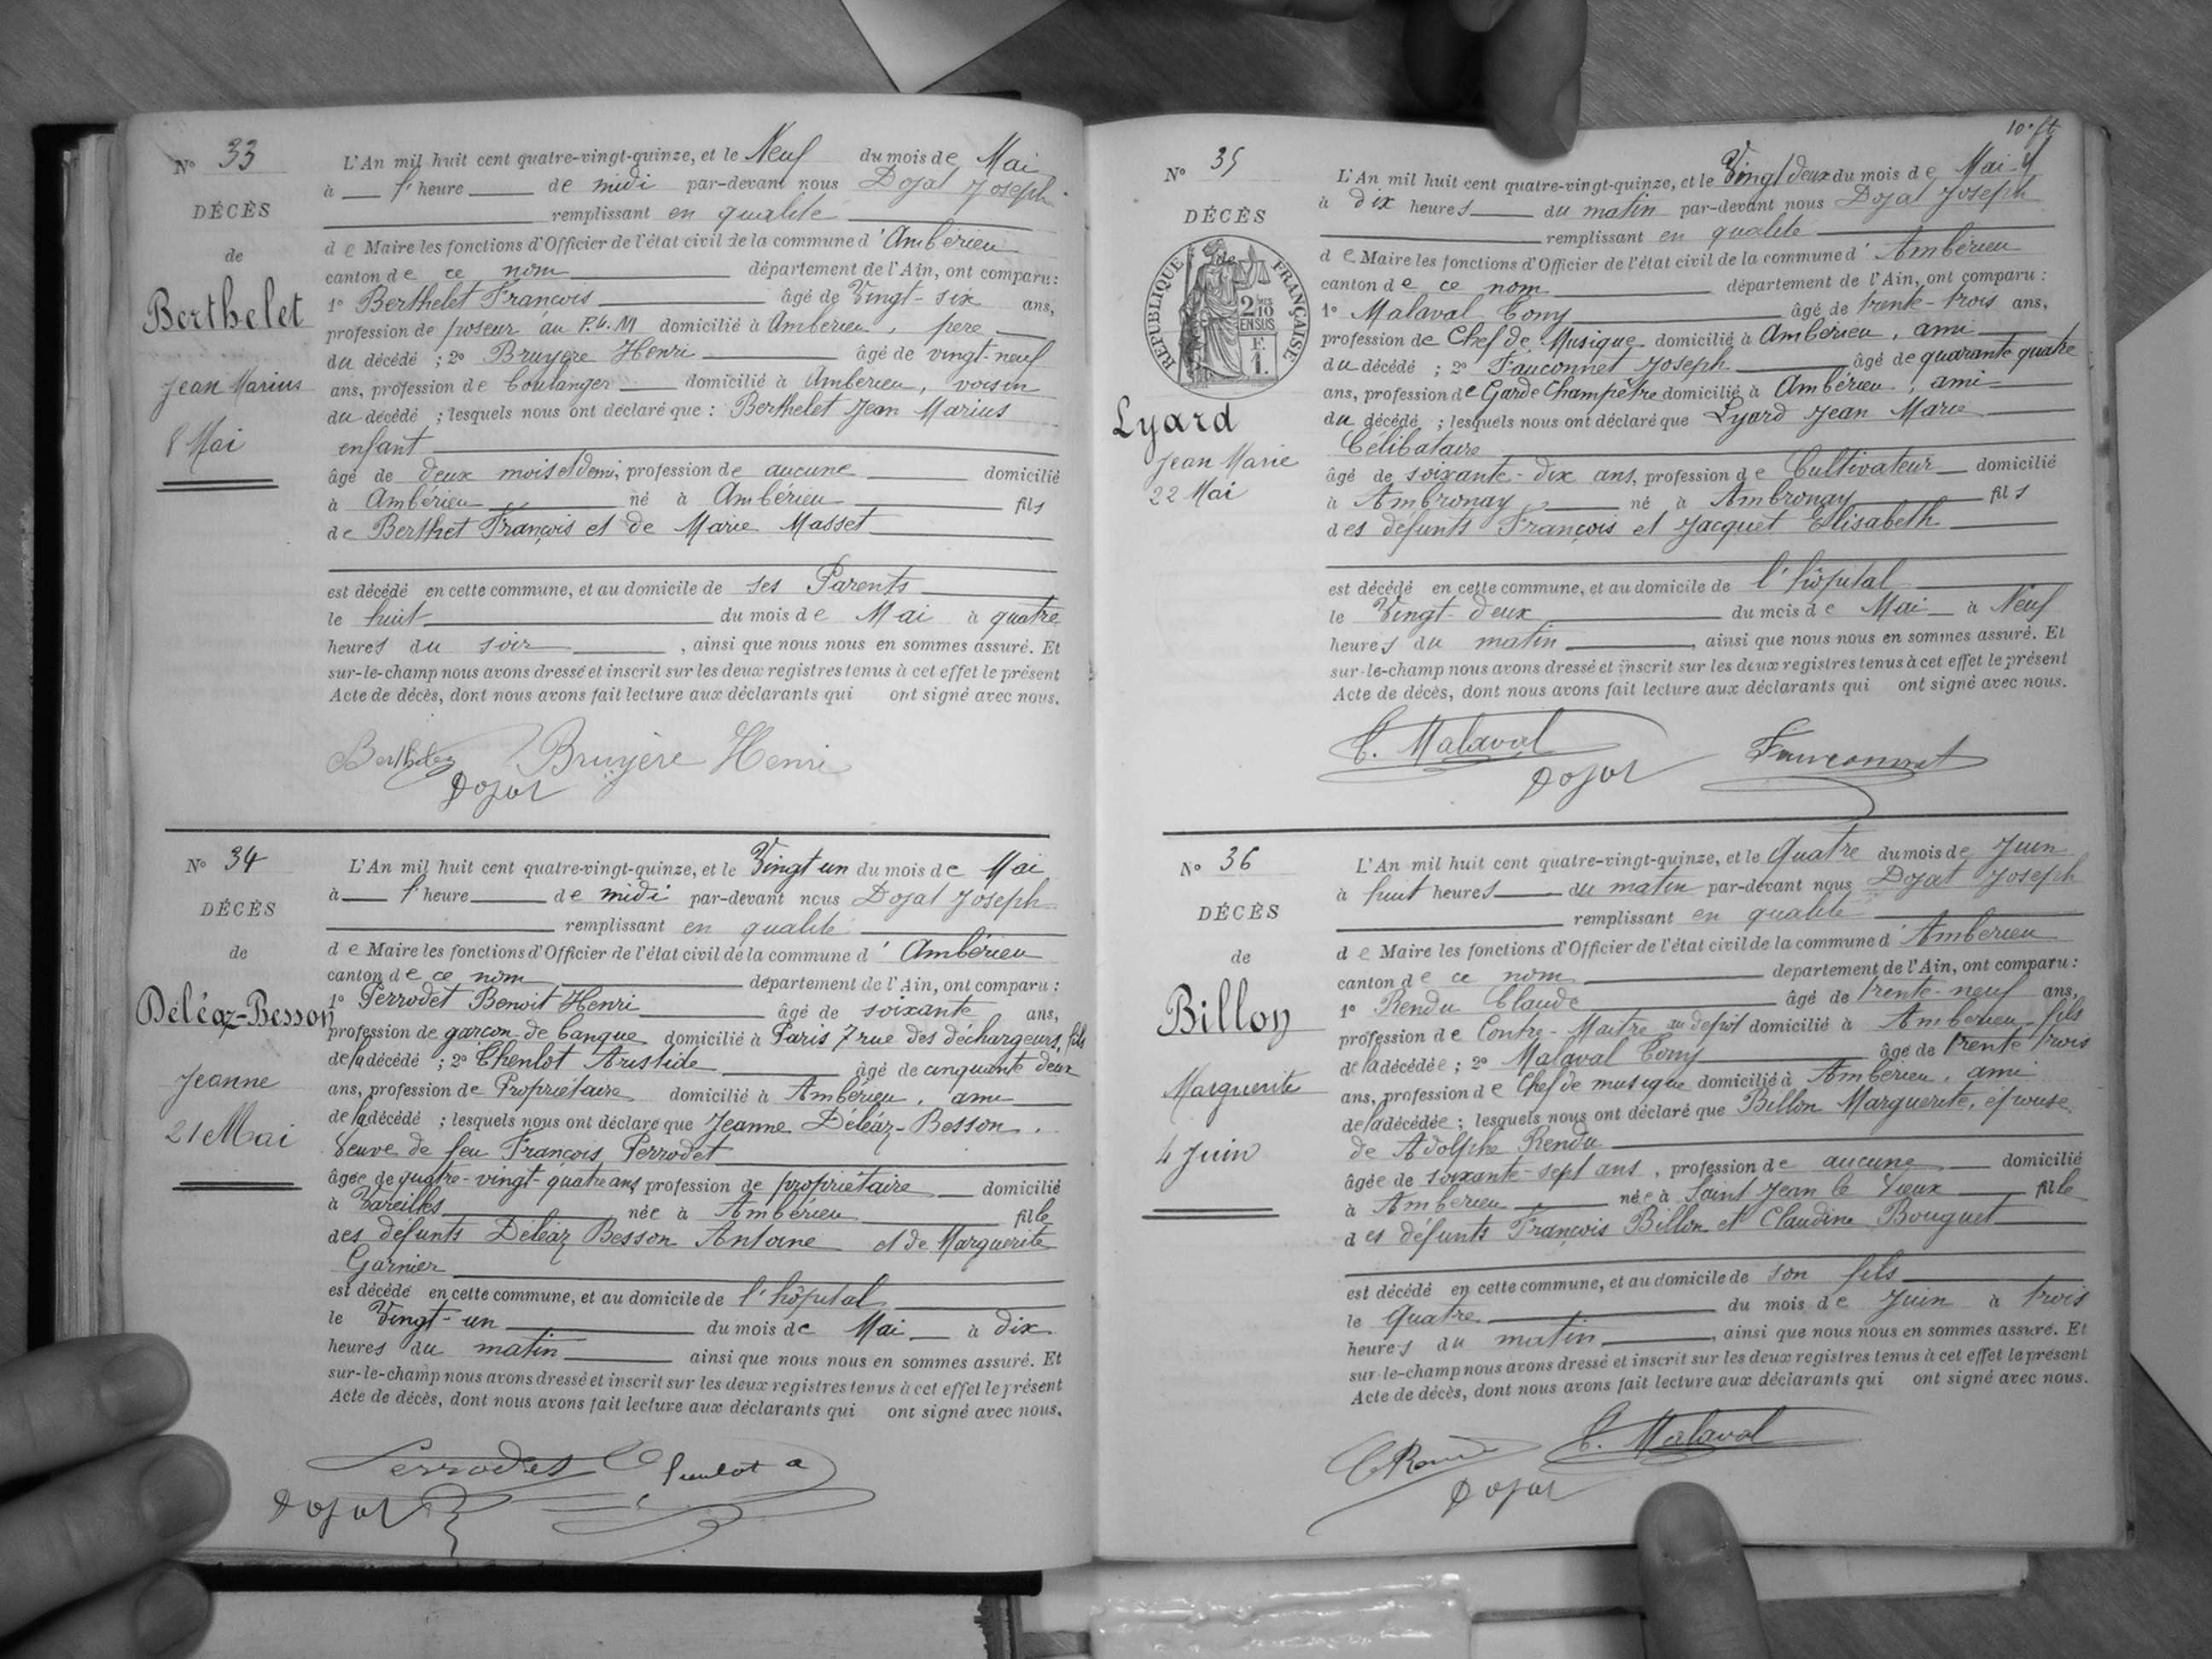 N° 33
DÉCÈS
de
Berthelet
Jean Marius
8 Mai
L'An mil huit cent quatre-vingt-quinze, et le Neuf du mois de Mai
à l'heure de midi par-devant nous Dojat Joseph
remplissant en qualité
de Maire les fonctions d'Officier de l'état civil de la commune d'Ambérieu
canton de ce nom département de l'Ain, ont comparu :
1° Berthelet François âgé de Vingt-six ans,
profession de poseur au P.L.M domicilié à Ambérieu, père
du décédé ; 2° Bruyère Henri âgé de vingt-neuf
ans, profession de boulanger domicilié à Ambérieu, voisin
du décédé ; lesquels nous ont déclaré que : Berthelet Jean Marius
enfant
âgé de deux mois et demi, profession de aucune domicilié
à Ambérieu né à Ambérieu fils
de Berthet François et de Marie Masset
est décédé en cette commune, et au domicile de ses Parents
le huit du mois de Mai à quatre
heures du soir, ainsi que nous nous en sommes assuré. Et
sur-le-champ nous avons dressé et inscrit sur les deux registres tenus à cet effet le présent
Acte de décès, dont nous avons fait lecture aux déclarants qui ont signé avec nous.
Berthelet Bruyère Henri
Dojat
N° 34
DÉCÈS
de
Déléaz-Besson
Jeanne
21 Mai
L'An mil huit cent quatre-vingt-quinze, et le Vingt un du mois de Mai
à l'heure de midi par-devant nous Dojat Joseph
remplissant en qualité
de Maire les fonctions d'Officier de l'état civil de la commune d'Ambérieu
canton de ce nom département de l'Ain, ont comparu :
1° Perrodet Benoit Henri âgé de soixante ans,
profession de garçon de banque domicilié à Paris 7 rue des déchargeurs, fils
de la décédé ; 2° Chenlot Aristide âgé de cinquante deux
ans, profession de Propriétaire domicilié à Ambérieu, ami
de la décédé ; lesquels nous ont déclaré que Jeanne Déléaz-Besson,
Veuve de feu François Perrodet
âgée de quatre-vingt-quatre ans, profession de propriétaire domicilié
à Vareilles née à Ambérieu fille
des défunts Déléaz Besson Antoine et de Marguerite
Garnier
est décédé en cette commune, et au domicile de l'hôpital
le Vingt-un du mois de Mai à dix
heures du matin ainsi que nous nous en sommes assuré. Et
sur-le-champ nous avons dressé et inscrit sur les deux registres tenus à cet effet le présent
Acte de décès, dont nous avons fait lecture aux déclarants qui ont signé avec nous.
Perrodet Chenlot a
Dojat
10e ft
N° 35
DÉCÈS
de
RÉPUBLIQUE FRANÇAISE
2/10 EN SUS
F. 1.
Lyard
Jean Marie
22 Mai
L'An mil huit cent quatre-vingt-quinze, et le Vingt deux du mois de Mai
à dix heures du matin par-devant nous Dojat Joseph
remplissant en qualité
de Maire les fonctions d'Officier de l'état civil de la commune d'Ambérieu
canton de ce nom département de l'Ain, ont comparu :
1° Malaval Tony âgé de trente-trois ans,
profession de Chef de Musique domicilié à Ambérieu, ami
du décédé ; 2° Fauconnet Joseph âgé de quarante quatre
ans, profession de Garde Champêtre domicilié à Ambérieu, ami
du décédé ; lesquels nous ont déclaré que Lyard Jean Marie
Célibataire
âgé de soixante-dix ans, profession de Cultivateur domicilié
à Ambronay né à Ambronay fils
des défunts François et Jacquet Elisabeth
est décédé en cette commune, et au domicile de l'hôpital
le Vingt-deux du mois de Mai à Neuf
heures du matin, ainsi que nous nous en sommes assuré. Et
sur-le-champ nous avons dressé et inscrit sur les deux registres tenus à cet effet le présent
Acte de décès, dont nous avons fait lecture aux déclarants qui ont signé avec nous.
T. Malaval Fauconnet
Dojat
N° 36
DÉCÈS
de
Billon
Marguerite
4 Juin
L'An mil huit cent quatre-vingt-quinze, et le Quatre du mois de Juin
à huit heures du matin par-devant nous Dojat Joseph
remplissant en qualité
de Maire les fonctions d'Officier de l'état civil de la commune d'Ambérieu
canton de ce nom département de l'Ain, ont comparu :
1° Rendu Claude âgé de trente-neuf ans,
profession de Contre-Maitre au dépôt domicilié à Ambérieu fils
de la décédée ; 2° Malaval Tony âgé de trente trois
ans, profession de Chef de musique domicilié à Ambérieu, ami
de la décédée ; lesquels nous ont déclaré que Billon Marguerite, épouse
de Adolphe Rendu
âgée de soixante-sept ans, profession de aucune domicilié
à Ambérieu née à Saint Jean le Vieux fille
des défunts François Billon et Claudine Bouguet
est décédé en cette commune, et au domicile de son fils
le Quatre du mois de Juin à trois
heures du matin, ainsi que nous nous en sommes assuré. Et
sur-le-champ nous avons dressé et inscrit sur les deux registres tenus à cet effet le présent
Acte de décès, dont nous avons fait lecture aux déclarants qui ont signé avec nous.
C Rendu T. Malaval
Dojat